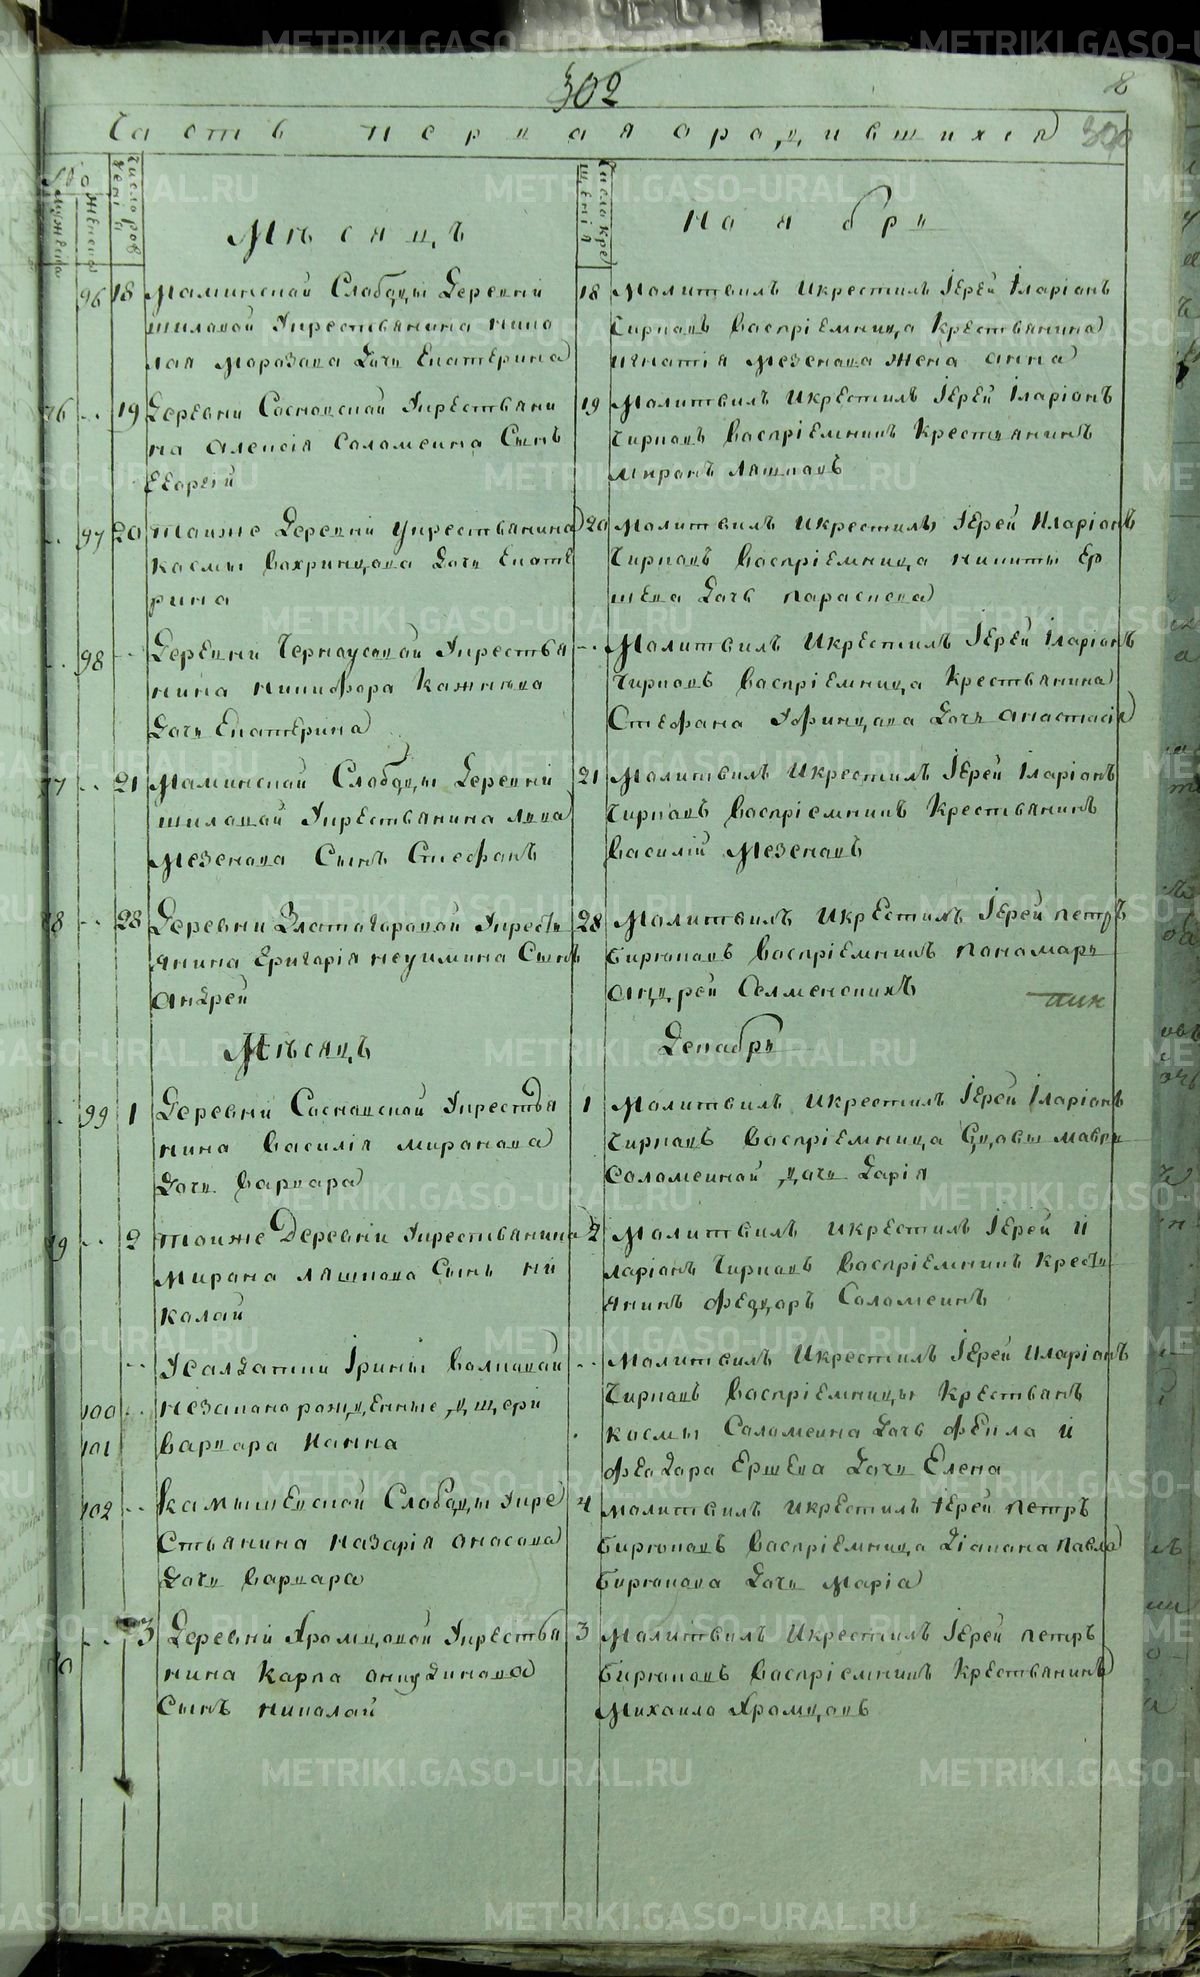 302
8
Часть первая о родившихся
309
№
Число рождений
Число крещения
мужеска
женска
Мѣсяцъ
Ноябрь
96 18 Маминской Слободы Деревни
шиловой Укрестьянина нико
лая Морозова Дочь Екатерина
18 Молитвилъ Икрестилъ Іерей Іларіонъ
Чирковъ Воспріемница Крестьянина
игнатія Мезенова жена анна
76 19 Деревни Сосновской Укрестьяни
на алексія Соломеина Сынъ
Егоргій
19 Молитвилъ Икрестилъ Іерей Іларіонъ
Чирковъ Воспріемникъ Крестьянинъ
миронъ ляшковъ
97 20 тоиже Деревни укрестьянина
космы Вохринцова Дочь Екате
рина
20 Молитвилъ Икрестилъ Іерей Иларіонъ
Чирковъ Воспріемница никиты Ер
шева Дочь параскева
98 Деревни Черноусовой Укрестья
нина никифора
Дочь Екатерина
Молитвилъ Икрестилъ Іерей Іларіонъ
Чирковъ Воспріемница Крестьянина
Стефана Уфинцова Дочь анастасія
77 21 Маминской Слободы Деревни
шиловой Укрестьянина лва
Мезенова Сынъ Стефанъ
21 Молитвилъ Икрестилъ Іерей Іларіонъ
Чирковъ Воспріемникъ Крестьянинъ
Василій Мезеновъ
78 28 Деревни Златогоровой Укресть
янина Григорія неуимина Сынъ
андрей
28 Молитвилъ Икрестилъ Іерей петръ
Бирюковъ Воспріемникъ пономарь
андрей Селменскихъ
Мѣсяцъ
Декабрь
99 1 Деревни Сосновской Укрестья
нина Василія миронова
Дочь Варвара
1 Молитвилъ Икрестилъ Іерей Іларіонъ
Чирковъ Воспріемница вдовы мавры
Соломеиной дочь Дарія
79 2 тоиже Деревни Укрестьянина
Мирона ляшкова Сынъ ни
колай
2 Молитвилъ Икрестилъ Іерей и
ларіонъ Чирковъ Воспріемникъ Кресть
янинъ федоръ Соломеинъ
Усалдатки Ірины Волковой
100 незаконорожденные дщери
101 Варвара Ианна
Молитвилъ Икрестилъ Іерей Иларіонъ
Чирковъ Воспріемницы Крестьянъ
космы Соломеина Дочь фекла и
феодора Ершева Дочь Елена
102 Камышевской Слободы Укре
стьянина назарія
Дочь Варвара
4 молитвилъ Икрестилъ Іерей петръ
Бирюковъ Воспріемница Діакона павла
Бирюкова Дочь Марія
3 Деревни Хромцовой Укрестья
нина Карпа
Сынъ николай
3 Молитвилъ Икрестилъ Іерей петръ
Бирюковъ Воспріемникъ Крестьянинъ
Михаило Хромцовъ
METRIKI.GASO-URAL.RU